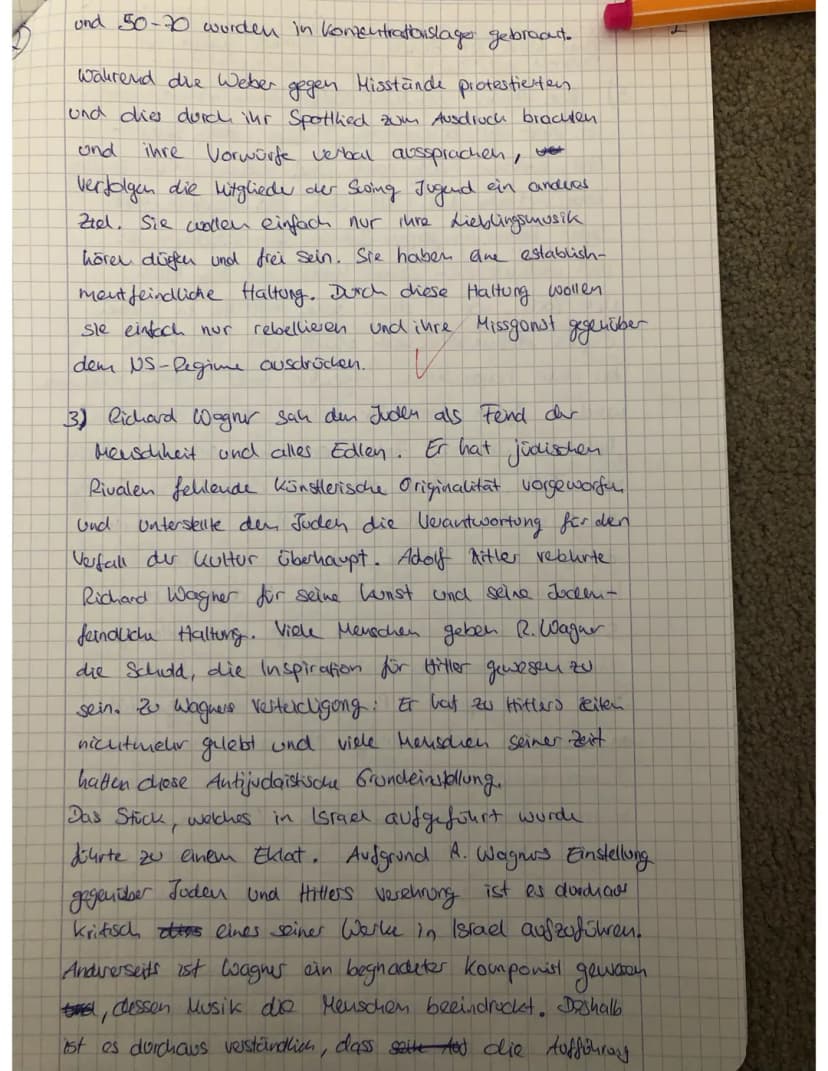 und 50-70 wurden in Konzentrationslager gebracht.
Während die Weber gegen Misstände protestierten
und dies durch ihr Spottlied zum Ausdruck brachten
und ihre Vorwürfe verbal aussprachen,
verfolgen die Mitglieder der Swing Jugend ein anderes
Ziel. Sie wollen einfach nur ihre Lieblingsmusik
hören dürfen und frei sein. Sie haben eine establish-
mentfeindliche Haltung. Durch diese Haltung wollen
sie einfach nur rebellieren und ihre Missgunst gegenüber
dem NS-Regime ausdrücken.
3) Richard Wagner sah den Juden als Feind der
Menschheit und alles Edlen. Er hat jüdischen
Rivalen fehlende künstlerische Originalität vorgeworfen
und unterstellte den Juden die Verantwortung für den
Verfall der Kultur überhaupt. Adolf Hitler verehrte
Richard Wagner für seine Kunst und seine Juden-
feindliche Haltung. Viele Menschen geben R. Wagner
die Schuld, die Inspiration für Hitler gewesen zu
sein. Zu Wagners Verteidigung: Er hat zu Hitlers Zeiten
nichtmehr gelebt und viele Menschen seiner Zeit
hatten diese Antijudaistische Grundeinstellung.
Das Stück, welches in Israel aufgeführt wurde
führte zu einem Eklat. Aufgrund R. Wagners Einstellung
gegenüber Juden und Hitlers Verehrung ist es durchaus
kritisch eines seiner Werke in Israel aufzuführen.
Andererseits ist Wagner ein begnadeter Komponist gewesen
, dessen Musik die Menschen beeindruckt. Deshalb
ist es durchaus verständlich, dass die Aufführung